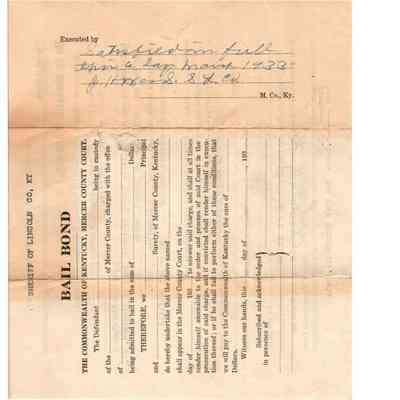 Executed by
Satisfied in full
this 6 day March 1933
S. L. Co.
M. Co., Ky.
SHERIFF OF LINCOLN CO, KY
BAIL BOND
THE COMMONWEALTH OF KENTUCKY, MERCER COUNTY COURT.
The Defendant being in custody
of the of Mercer County, charged with the offen
of
being admitted to bail in the sum of Dollar
THEREFORE, we Principal
and Surety, of Mercer County, Kentucky,
do hereby undertake that the above named
shall appear in the Mercer County Court, on the
day of 193 to answer said charge, and shall at all times
render himself amenable to the order and process of said Court in the
prosecution of said charge, and if convicted shall render himself in execu-
tion thereof; or if he shall fail to perform either of these conditions, that
we will pay to the Commonwealth of Kentucky the sum of
Dollars.
Witness our hands, this day of , 193
Subscribed and acknowledged
in presence of